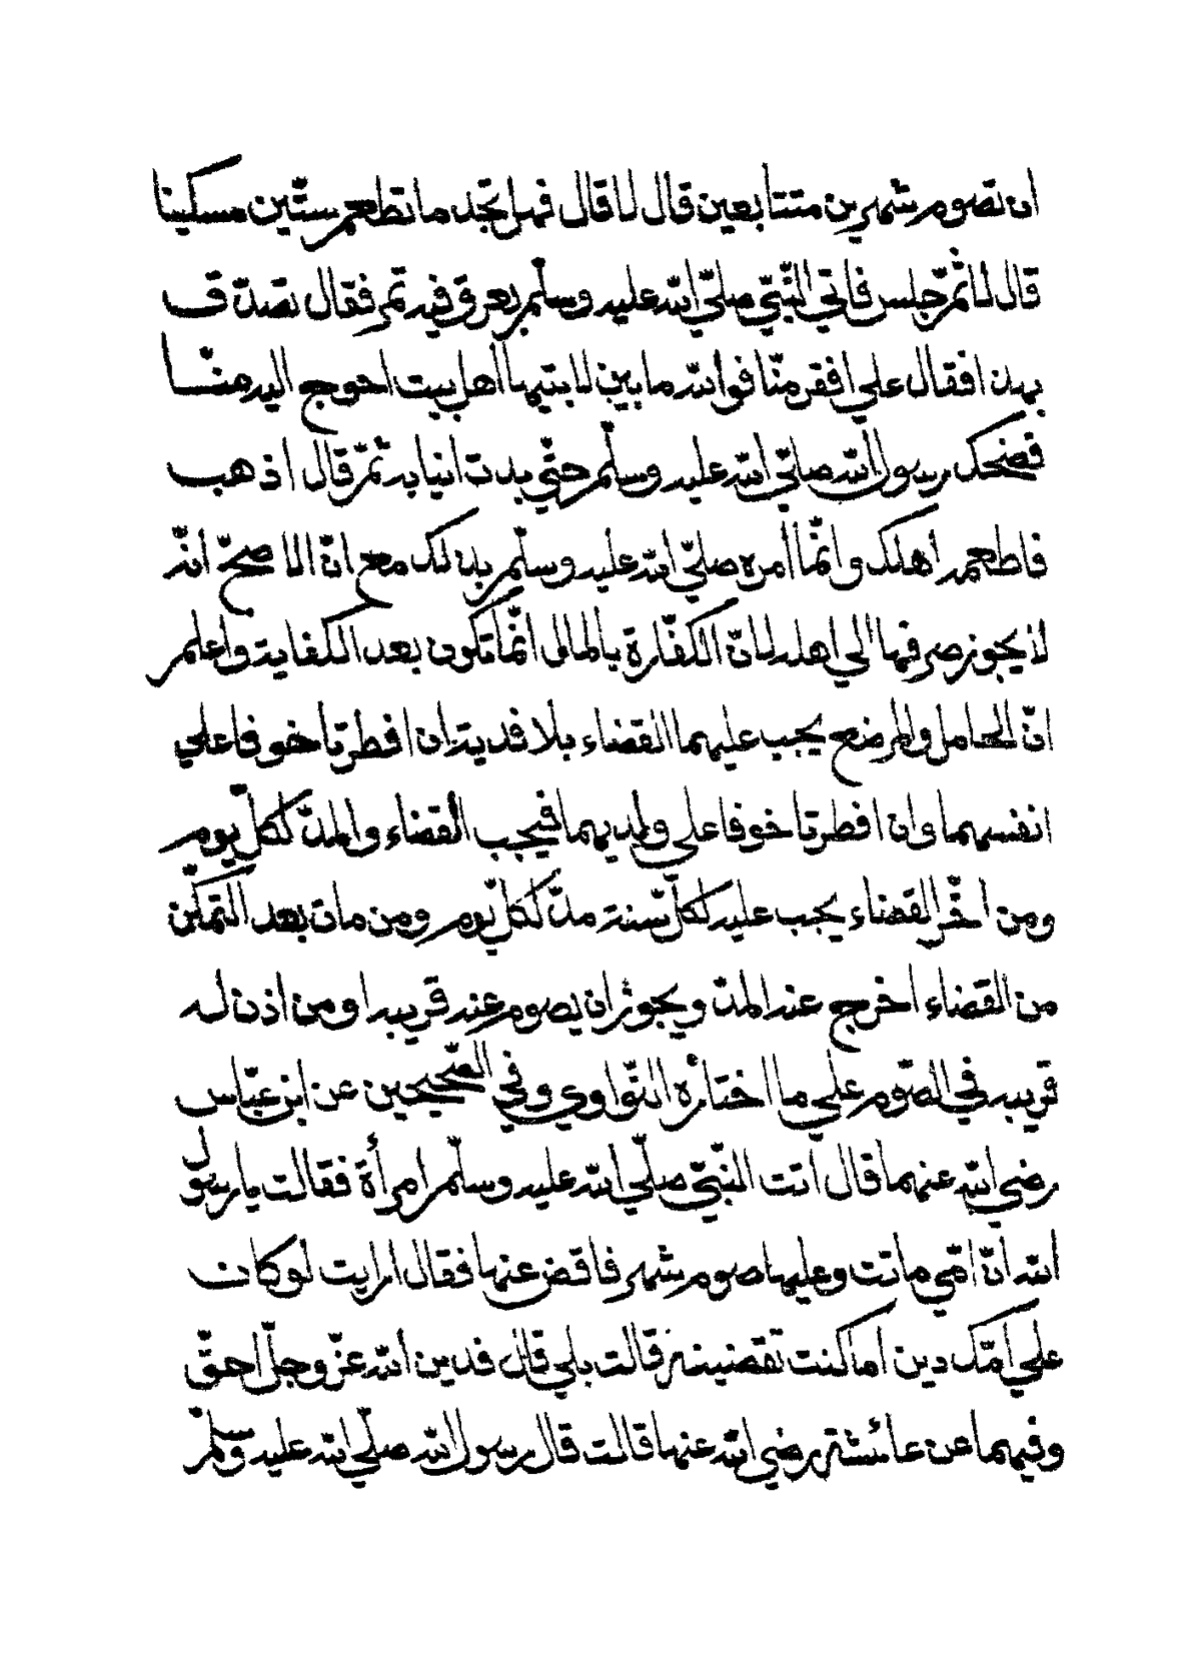 ان تصوم شهرين متتابعين قال لا قال فهل تجد ما تطعم ستّين مسكينا
قال لا ثمّ جلس فاتي النّبيّ صلّي الله عليه وسلّم بعرق فيه تمر فقال تصدّق
بهذا فقال علي افقر منّا فوالله ما بين لابتيها اهل بيت احوج اليه منّا
فضحك رسول الله صلّي الله عليه وسلّم حتّي بدت انيابه ثمّ قال اذهب
فاطعمه اهلك وانّما امره صلّي الله عليه وسلّم بذلك مع انّ الاصحّ انّه
لا يجوز صرفها الي اهله لانّ الكفّارة بالمال انّما تكون بعد الكفاية واعلم
انّ الحامل والمرضع يجب عليهما القضاء بلا فدية ان افطرتا خوفا علي
انفسهما وان افطرتا خوفا علي ولديهما فيجب القضاء والمدّ لكلّ يوم
ومن اخّر القضاء يجب عليه لكلّ سنة مدّ لكلّ يوم ومن مات بعد التمكّن
من القضاء اخرج عنه المدّ ويجوز ان يصوم عنه قريبه او من اذن له
قريبه في الصّوم علي ما اختاره النّواوي وفي الصّحيحين عن ابن عبّاس
رضي الله عنهما قال اتت النّبيّ صلّي الله عليه وسلّم امرأة فقالت يا رسول
الله انّ امّي ماتت وعليها صوم شهر فاقض عنها فقال ارايت لو كان
علي امّك دين اما كنت تقضينه قالت بلي قال فدين الله عزّ وجلّ احقّ
وفيهما عن عائشة رضي الله عنها قالت قال رسول الله صلّي الله عليه وسلّم